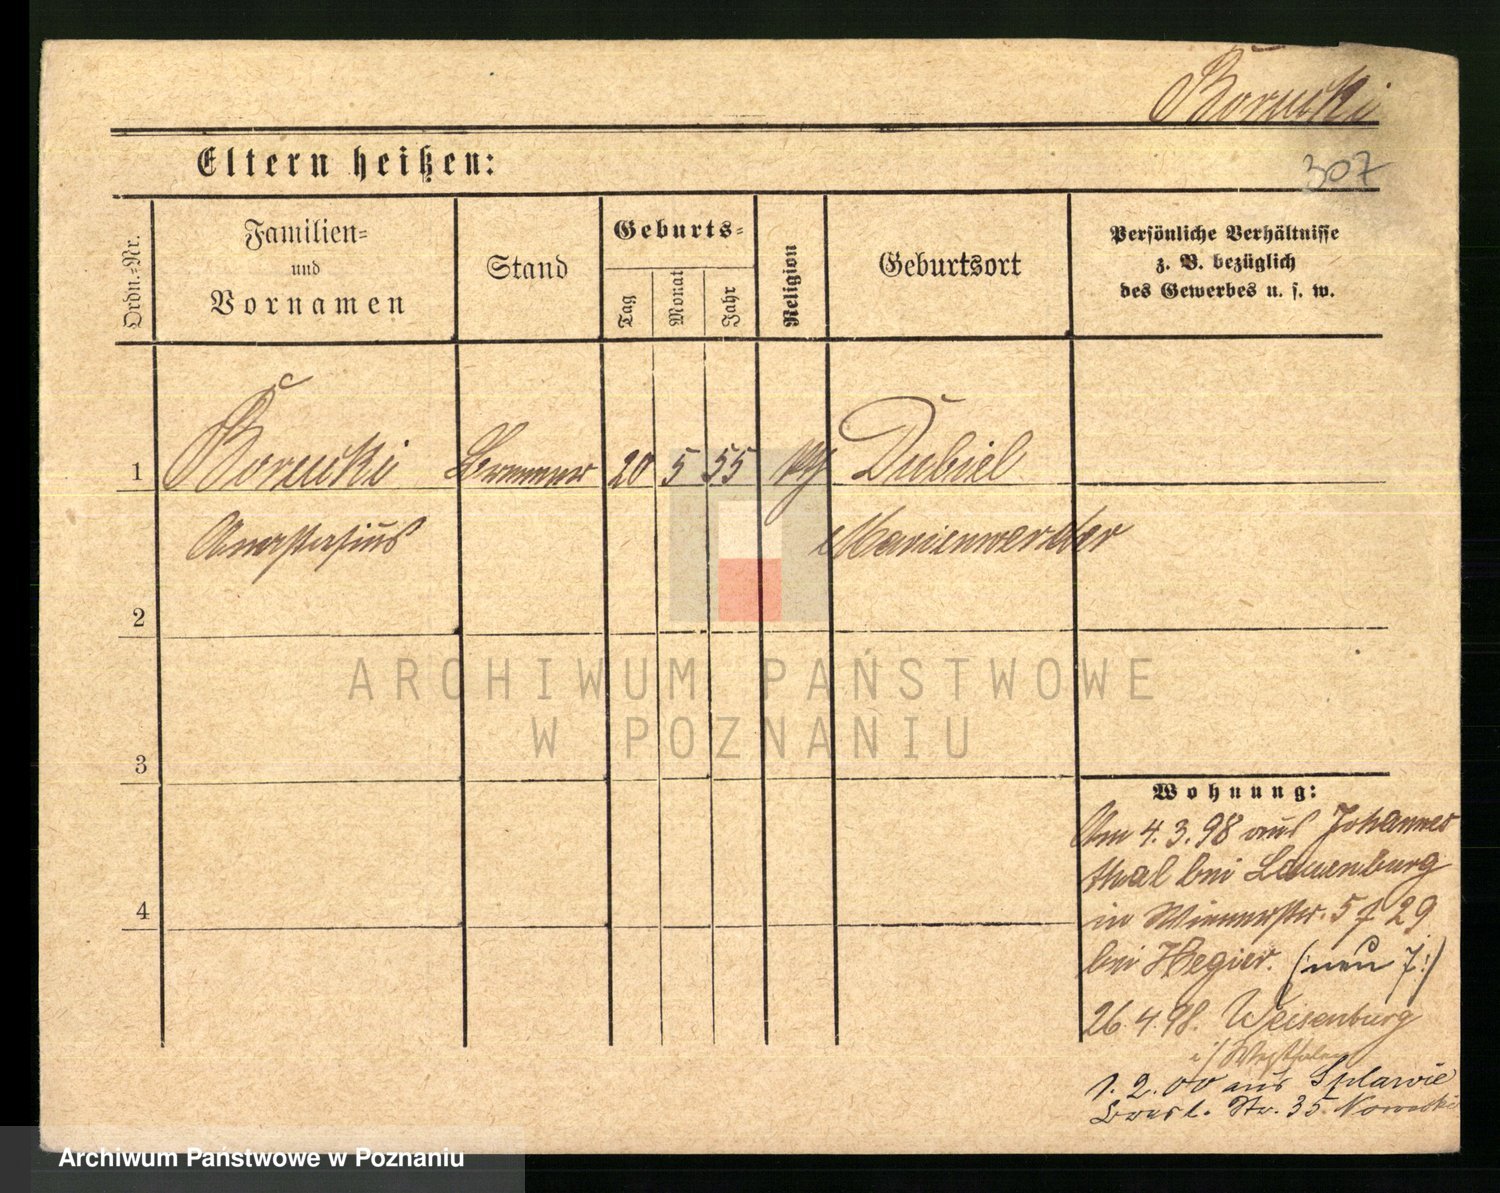 Borucki
Eltern heißen:
307
Ordn.=Nr.
Familien=
und
Vornamen
Stand
Geburts=
Tag
Monat
Jahr
Religion
Geburtsort
Persönliche Verhältnisse
z. B. bezüglich
des Gewerbes u. s. w.
1
Borucki
Brenner
20
5
55
Dubiel
Anastasius
Marienwerder
2
3
4
ARCHIWUM PAŃSTWOWE
W POZNANIU
Wohnung:
Am 4.3.98 aus Johannes
thal bei Lauenburg
in Wienerstr. 5 f 29
bei Hegier. (neu 7!)
26.4.98. Weisenburg
i/ Westfalen
1.2.00 aus Splawie
Bresl. Str. 35 Nowacki
Archiwum Państwowe w Poznaniu